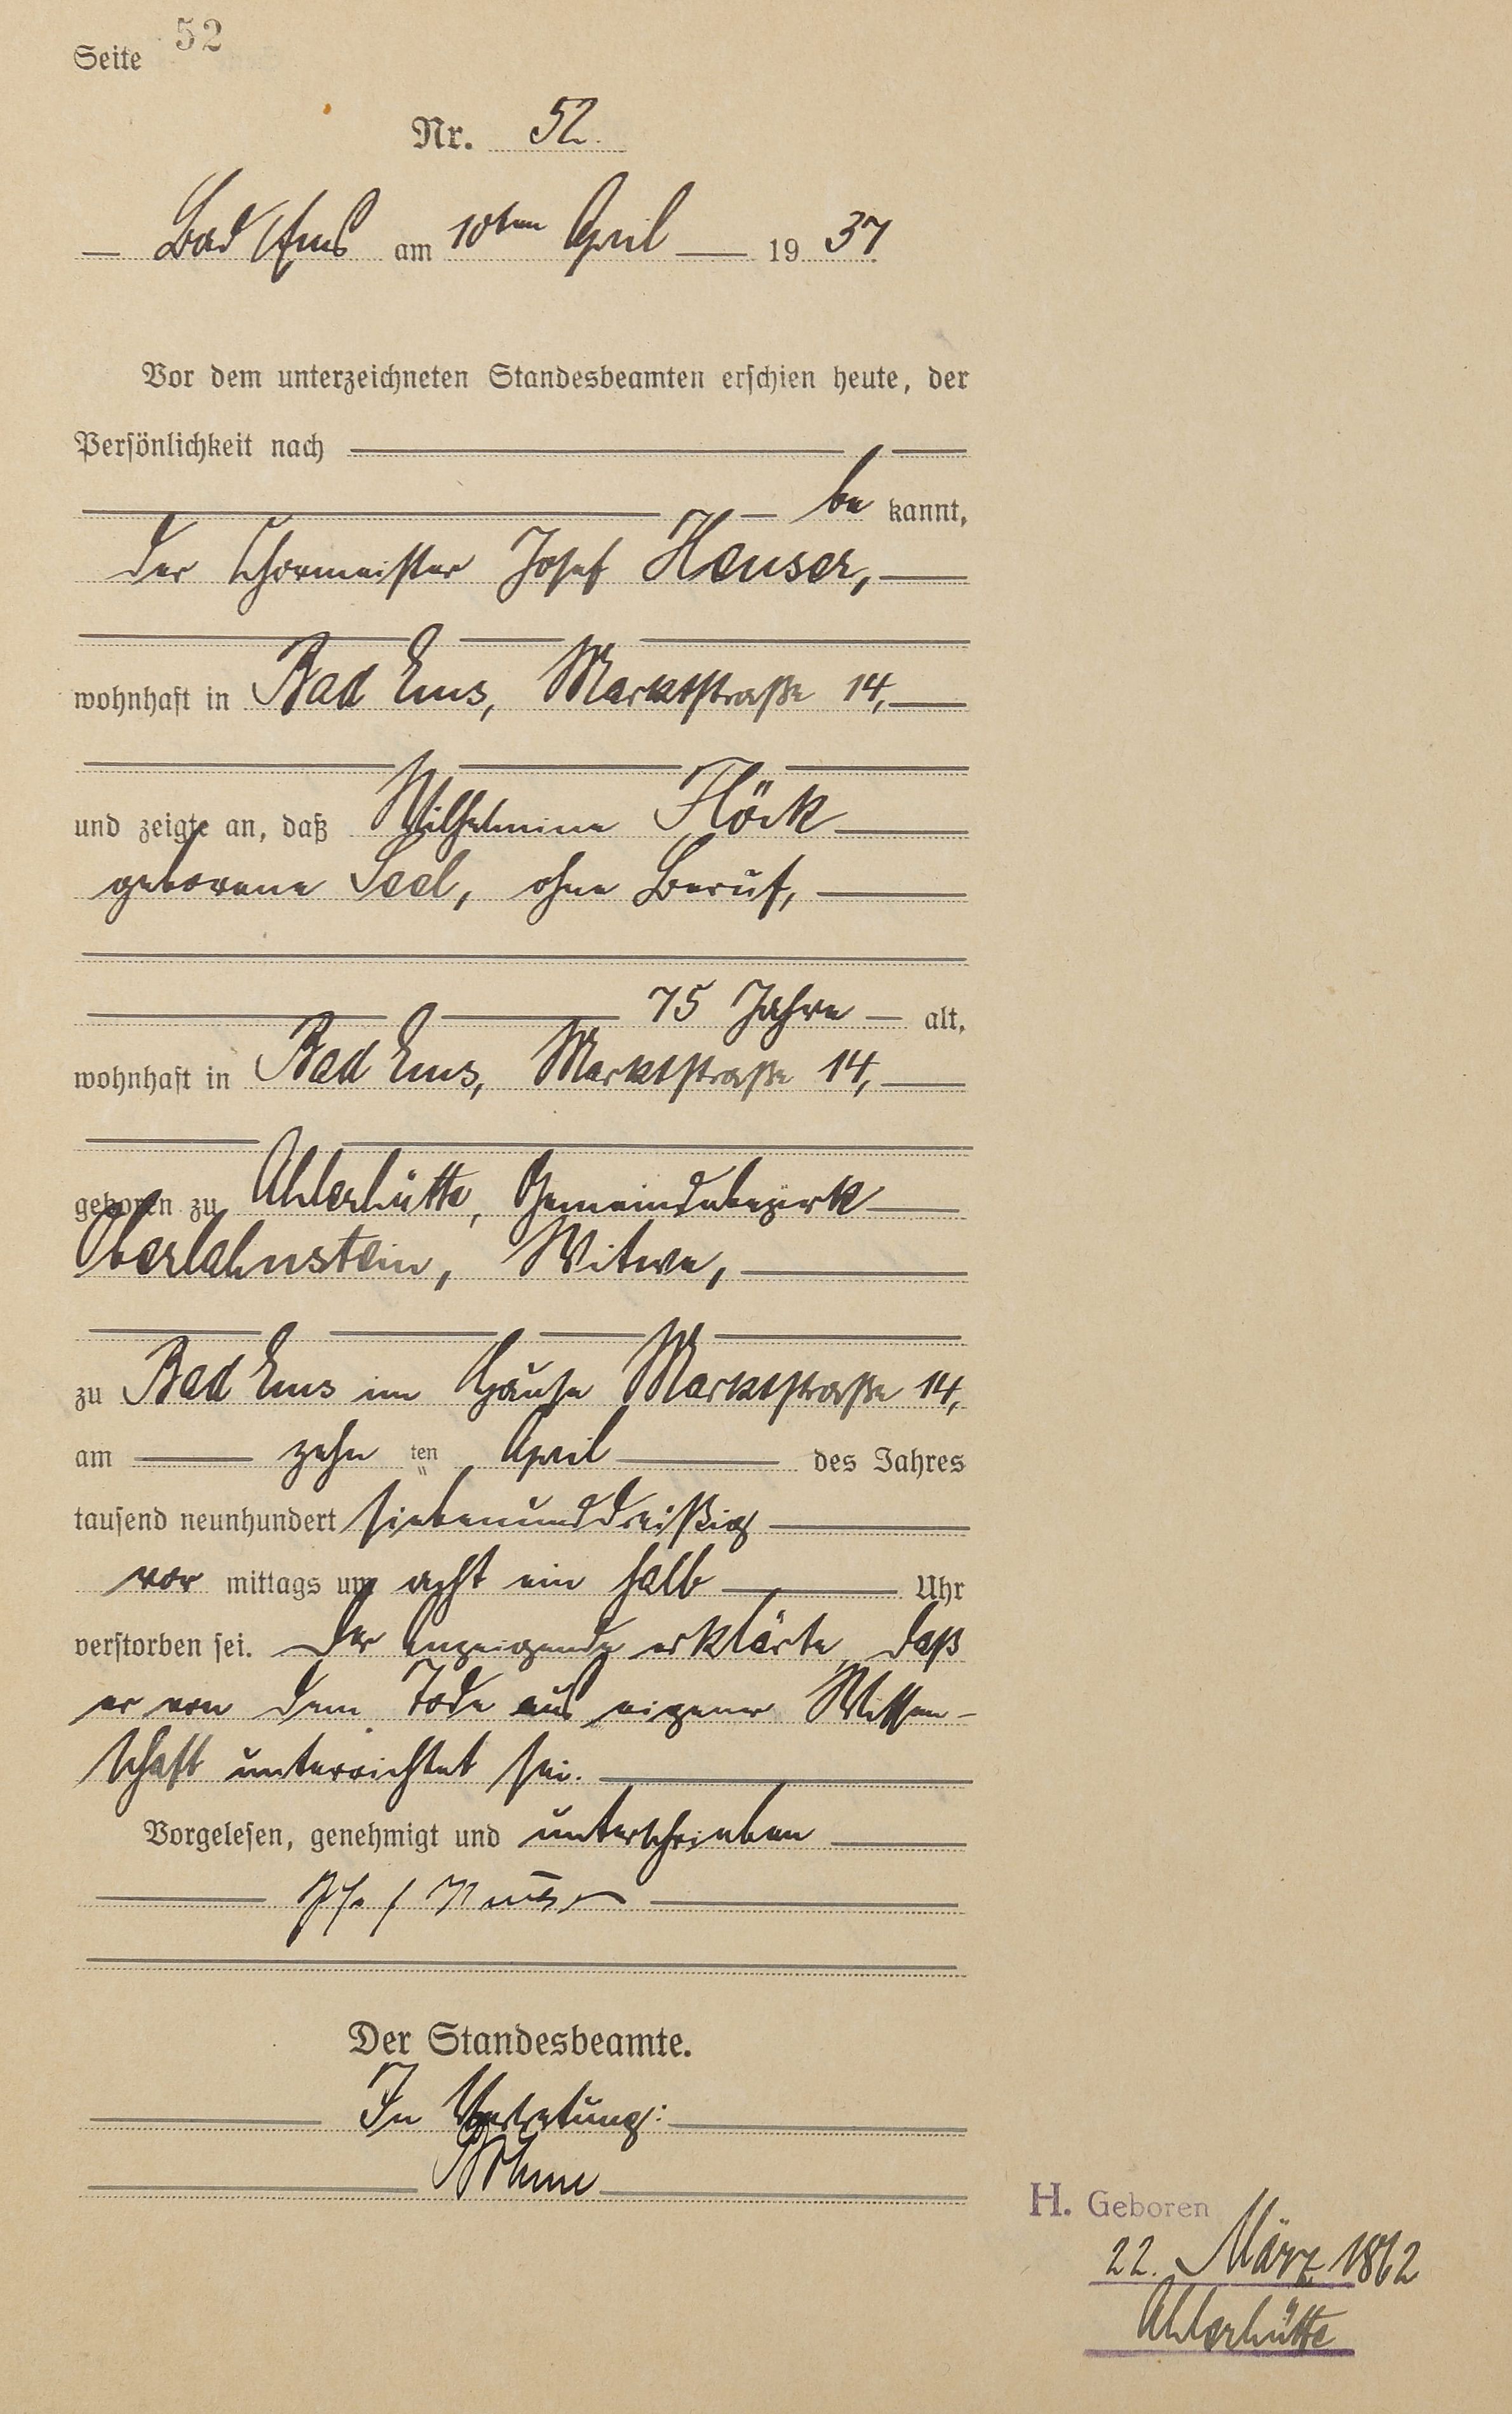 Seite 52
Nr. 52.
Bad Ems am 10ten April 19 37
Vor dem unterzeichneten Standesbeamten erschien heute, der
Persönlichkeit nach
be kannt,
der Chormeister Josef Heuser,
wohnhaft in Bad Ems, Marktstraße 14,
und zeigte an, daß Wilhelmine Flöck
geborene Seel, ohne Beruf,
75 Jahre alt,
wohnhaft in Bad Ems, Marktstraße 14,
geboren zu Ahlerhütte, Gemeindebezirk
Oberlahnstein, Witwe,
zu Bad Ems im Hause Marktstraße 14,
am zehn ten April des Jahres
tausend neunhundert siebenunddreißig
vor mittags um acht ein halb Uhr
verstorben sei. Der Anzeigende erklärte, daß
er von dem Tode aus eigener Wissen-
schaft unterrichtet sei.
Vorgelesen, genehmigt und unterschrieben
Josef Heuser
Der Standesbeamte.
In Vertretung:
H. Geboren
22. März 1862
Ahlerhütte